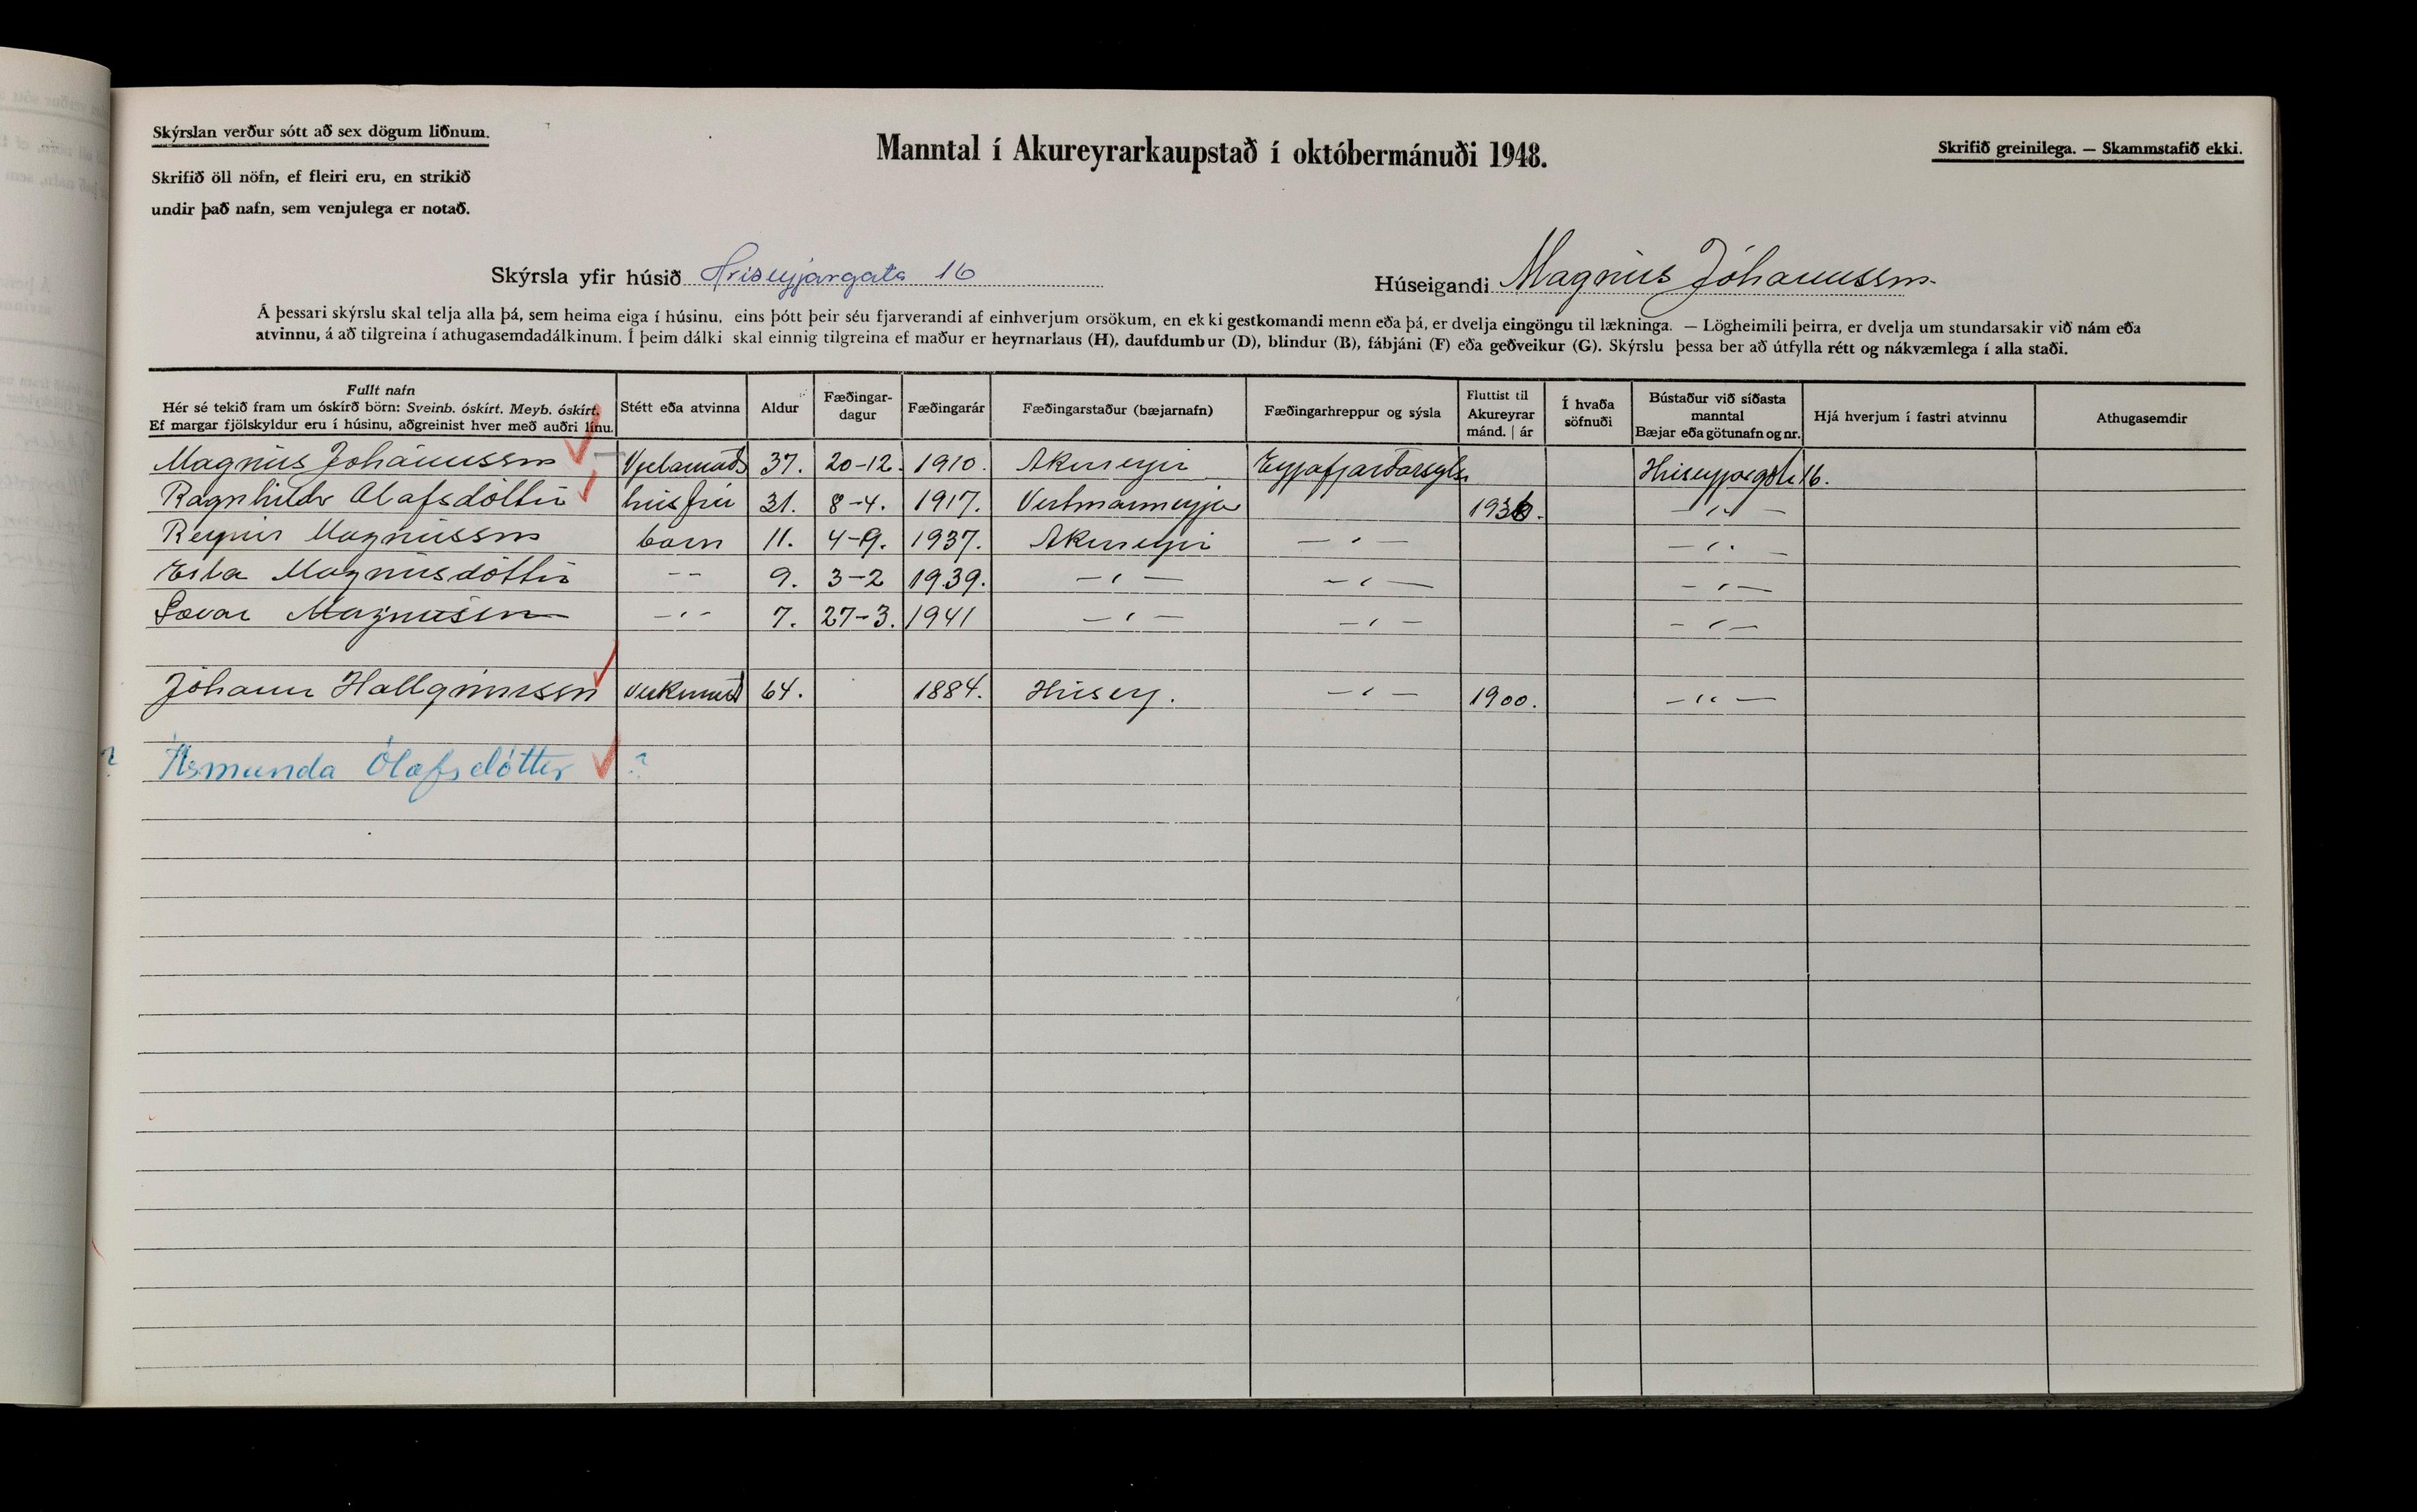 Skýrslan verður sótt að sex dögum liðnum.
Manntal í Akureyrarkaupstað í októbermánuði 1948.
Skrifið greinilega. — Skammstafið ekki.
Skrifið öll nöfn, ef fleiri eru, en strikið
undir það nafn, sem venjulega er notað.
Skýrsla yfir húsið Hriseyjargata 16
Húseigandi Magnús Jóhannsson
Á þessari skýrslu skal telja alla þá, sem heima eiga í húsinu, eins þótt þeir séu fjarverandi af einhverjum orsökum, en ekki gestkomandi menn eða þá, er dvelja eingöngu til lækninga. — Lögheimili þeirra, er dvelja um stundarsakir við nám eða
atvinnu, á að tilgreina í athugasemdadálkinum. Í þeim dálki skal einnig tilgreina ef maður er heyrnarlaus (H), daufdumbur (D), blindur (B), fábjáni (F) eða geðveikur (G). Skýrslu þessa ber að útfylla rétt og nákvæmlega í alla staði.
Fullt nafn
Hér sé tekið fram um óskírð börn: Sveinb. óskírt. Meyb. óskírt.
Ef margar fjölskyldur eru í húsinu, aðgreinist hver með auðri línu.
Stétt eða atvinna
Aldur
Fæðingar-
dagur
Fæðingarár
Fæðingarstaður (bæjarnafn)
Fæðingarhreppur og sýsla
Fluttist til
Akureyrar
mánd. | ár
Í hvaða
söfnuði
Bústaður við síðasta
manntal
Bæjar eða götunafn og nr.
Hjá hverjum í fastri atvinnu
Athugasemdir
Magnús Jóhannsson 37. 20-12. 1910. Akureyri Eyjafjarðarsýsl. 16.
Ragnhildr Olafsdóttir húsfrú 31. 8-4. 1917. Vestmanneyjar
Reynir Magnússon barn 11. 4-9. 1937. Akureyri — " — — " —
Erla Magnúsdóttir -- 9. 3-2 1939. — " — — " — — " —
Sævar Magnússon — " — 7. 27-3. 1941 — " — — " — — " —
Jóhann Hallgrímsson verkamað 64. 1884. Hrísey. — " — 1900. — " —
? Ásmunda Ólafsdóttir ?